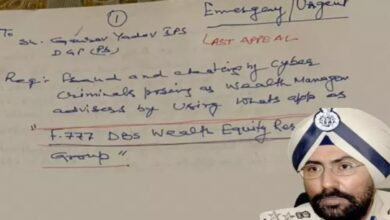 1
Emergency/Urgent
To
Sh. Gaurav Yadav IPS
DGP (Pb)
LAST APPEAL
Req:- Fraud and cheating by Cyber
Criminals posing as Wealth Manager
advisers by Using Whatsapp as
"F.777 DBS Wealth Equity Res
Group".